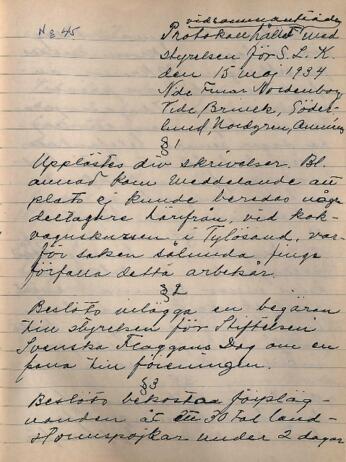 N:o 45.
vid sammanträde
Protokoll hållet med
styrelsen för S. L. K.
den 15 maj 1934
Nde Einar Nordenborg
Tide Brinck, Göder-
lund, Nordgren,
§ 1
Upplästes div skrivelser. Bl.
annat kom meddelande att
plats ej kunde beredas någo
deltagare härifrån, vid kok-
vagnskursen i Tylösand, var-
för saken sålunda finge
förfalla detta arbetsår.
§ 2
Beslöts villägga en begäran
till styrelsen för Stiftelsen
Svenska Flaggans Dag om en
fana till föreningen.
§ 3
Beslöts bekosta förpläg-
nanden åt ett 30 tal land-
stormspojkar under 2 dagar